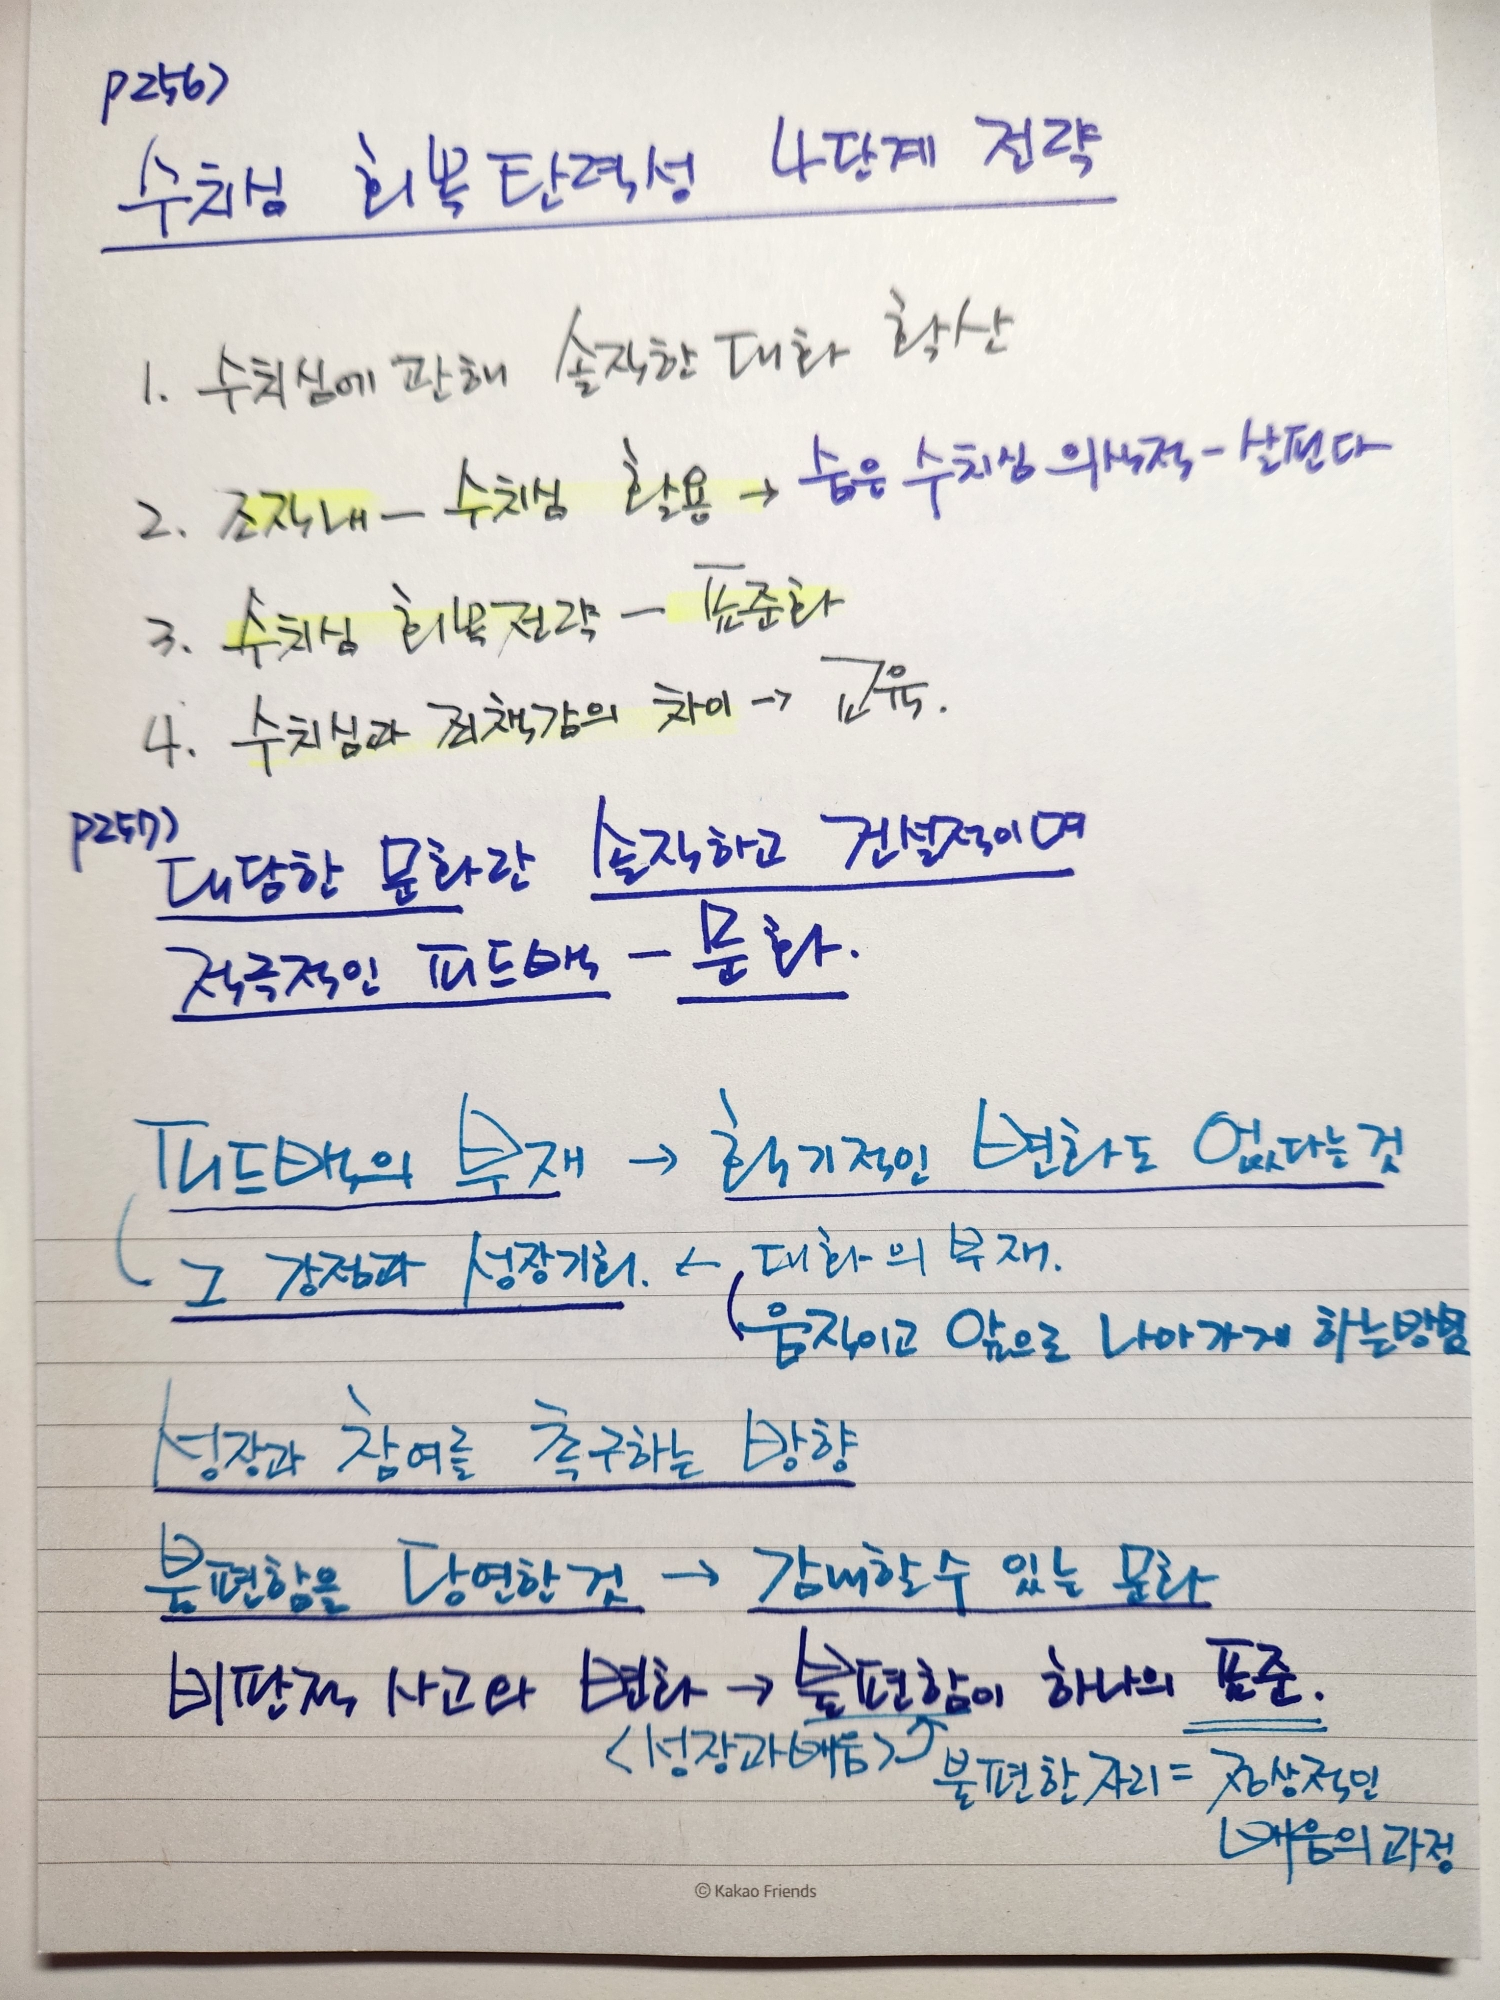 p256)
수치심 회복탄력성 4단계 전략
1. 수치심에 관해 솔직한 대화 확산
2. 조직내 – 수치심 활용 → 숨은 수치심 의식적 – 살핀다
3. 수치심 회복전략 – 표준화
4. 수치심과 죄책감의 차이 → 교육.
p257)
대담한 문화란 솔직하고 건설적이며
적극적인 피드백 – 문화.
피드백의 부재 → 획기적인 변화도 없다는것
그 강점과 성장기회. ← 대화의 부재.
움직이고 앞으로 나아가게 하는방법
성장과 참여를 촉구하는 방향
불편함을 당연한것 → 감내할수 있는 문화
비판적 사고와 변화 → 불편함이 하나의 표준.
<성장과배움>
불편한자리 = 정상적인
배움의과정
© Kakao Friends